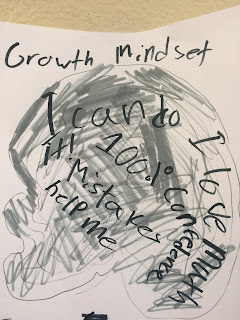 Growth mindset
I can do
it!
100%
Mistakes
help me
I love muth